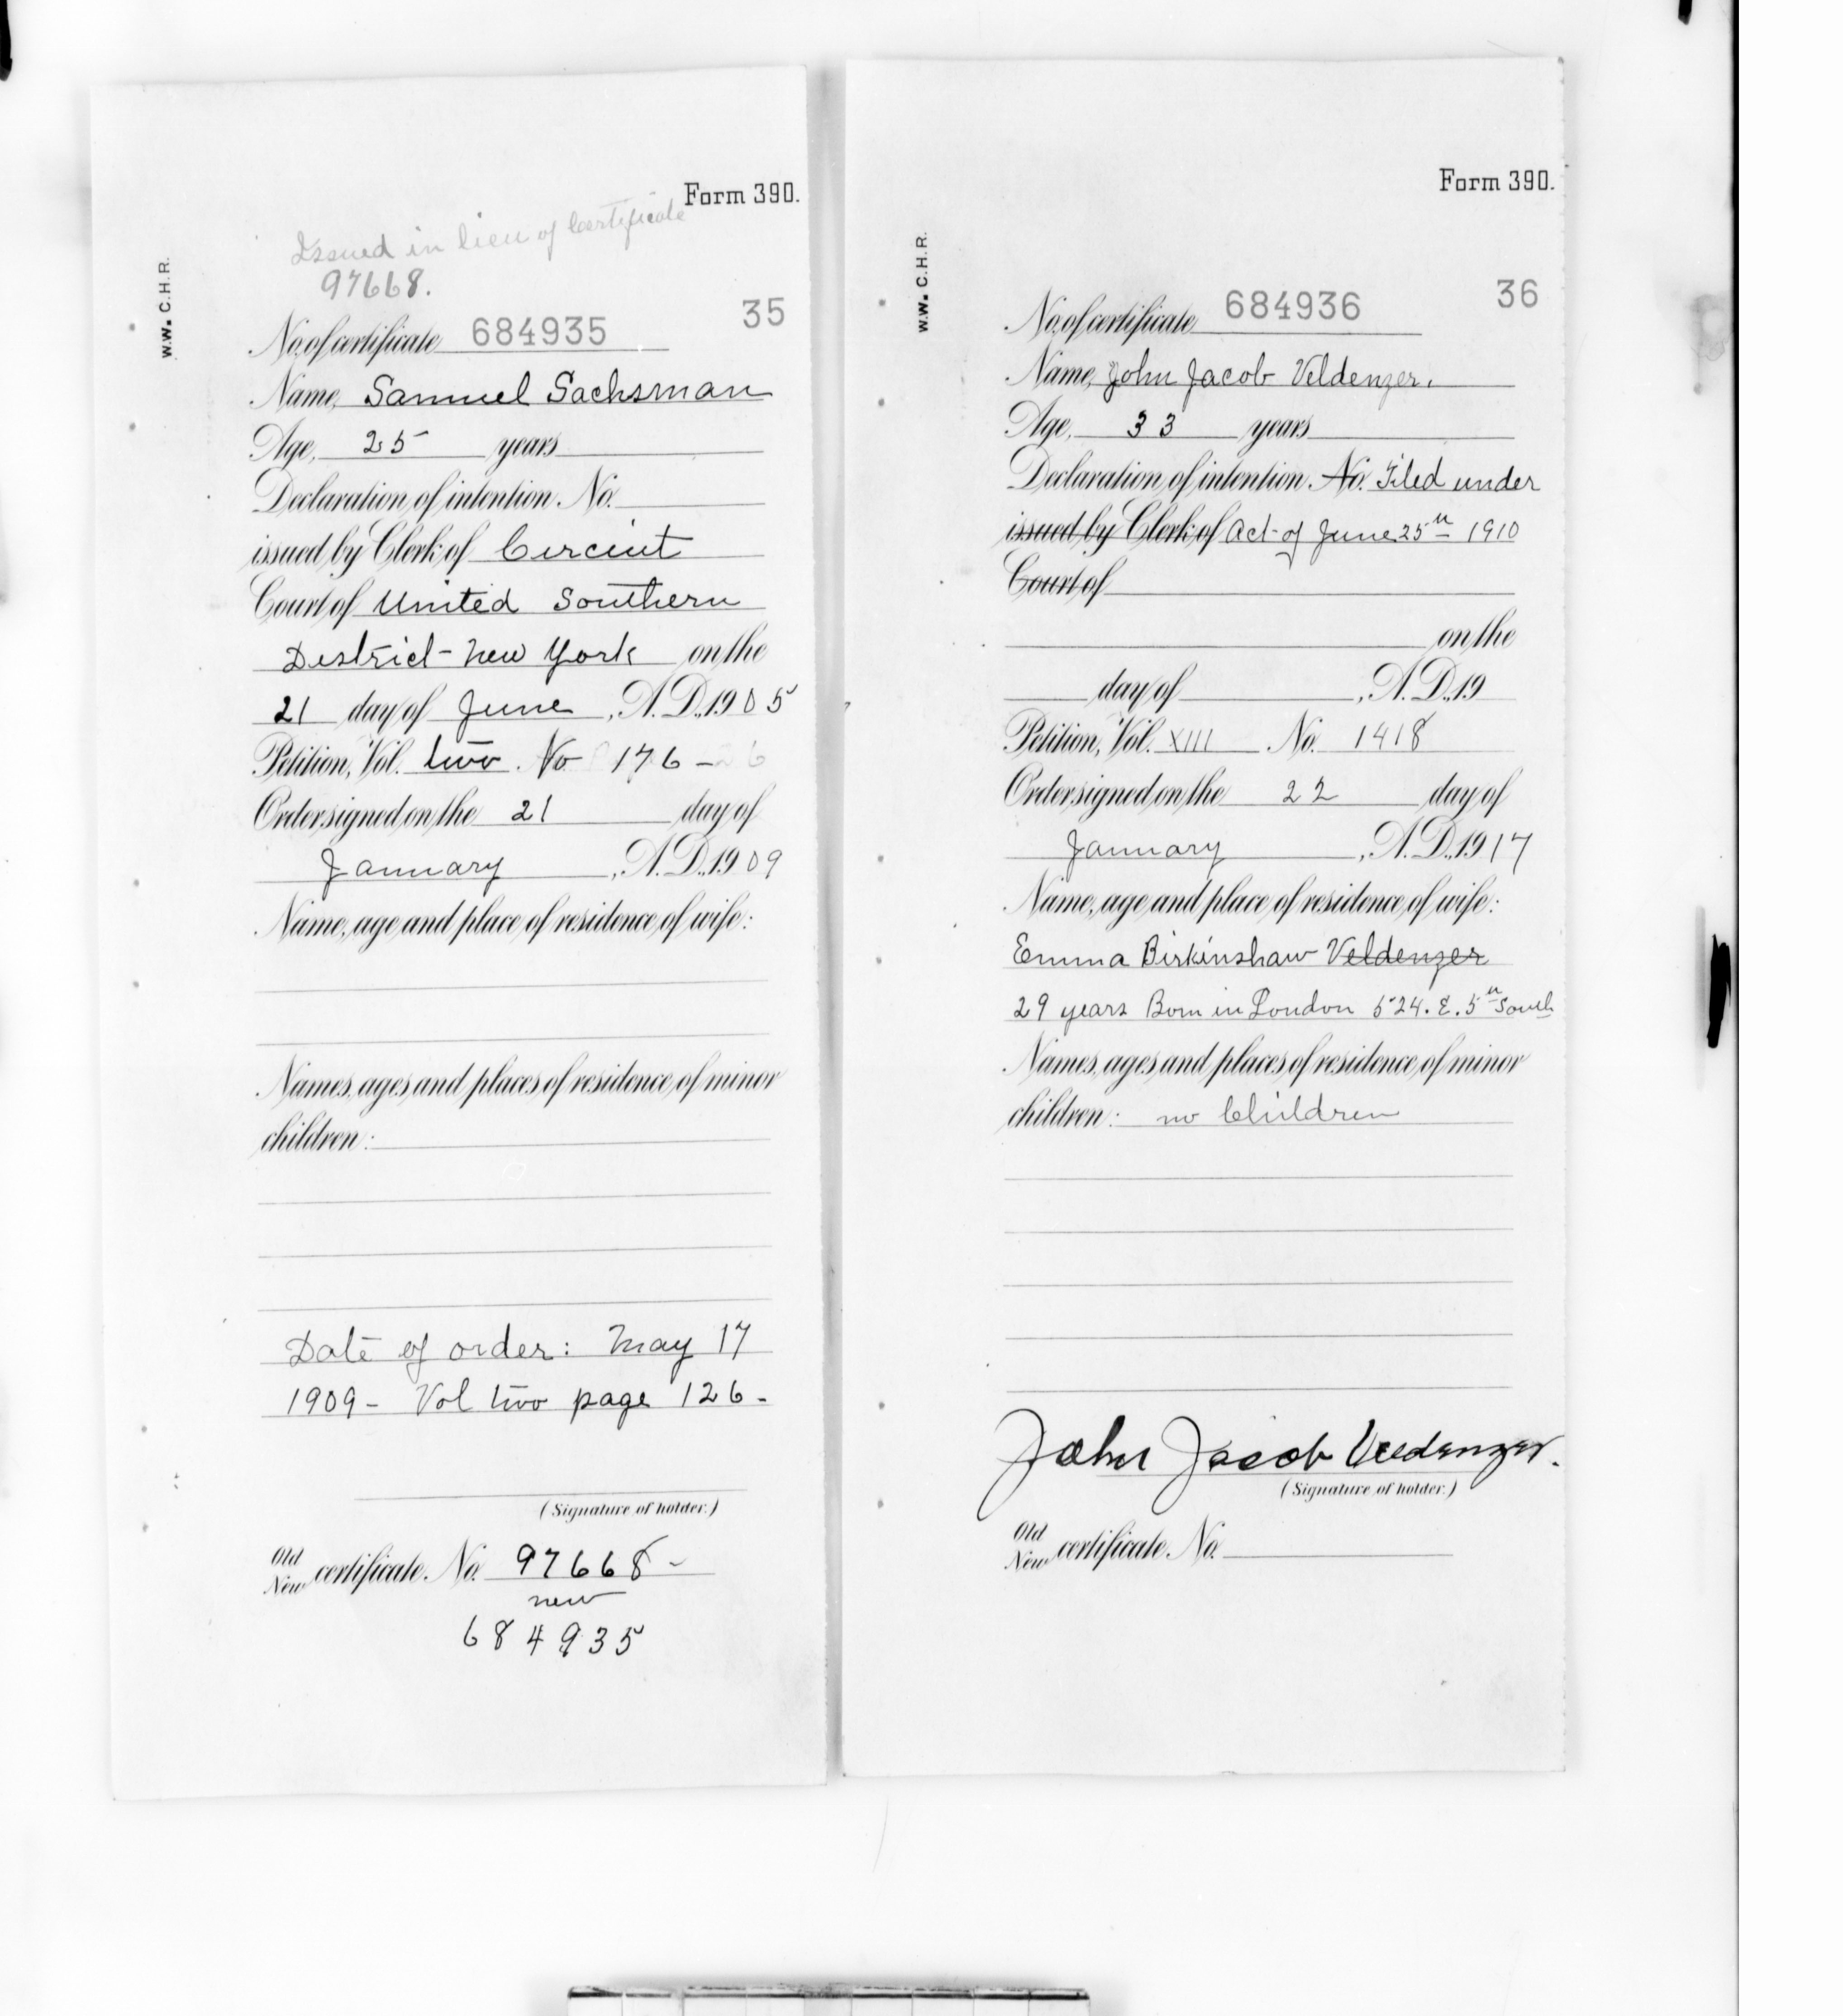 Form 390.
Issued in lieu of Certificate
97668.
W.W. C.H.R.
35
No. of certificate 684935
Name, Samuel Sachsman
Age, 25 years
Declaration of intention No.
issued by Clerk of Circiut
Court of United Southern
District - New York on the
21 day of June, A.D. 1905
Petition, Vol. two. No 176 -
Order signed on the 21 day of
January, A.D. 1909
Name, age and place of residence of wife:
Names, ages and places of residence of minor
children:
Date of order: May 17
1909 - Vol two page 126 -
(Signature of holder.)
Old
New certificate No. 97668 -
new
684935
Form 390.
W.W. C.H.R.
36
No. of certificate 684936
Name, John Jacob Veldenzer.
Age, 33 years
Declaration of intention No. Filed under
issued by Clerk of Act of June 25th 1910
Court of
on the
day of , A.D. 19
Petition, Vol. XIII No. 1418
Order signed on the 22 day of
January, A.D. 1917
Name, age and place of residence of wife:
Emma Birkinshaw Veldenzer
29 years Born in London 524. E. 5th South
Names, ages and places of residence of minor
children: no Children
John Jacob Veldenzer.
(Signature of holder.)
Old
New certificate No.